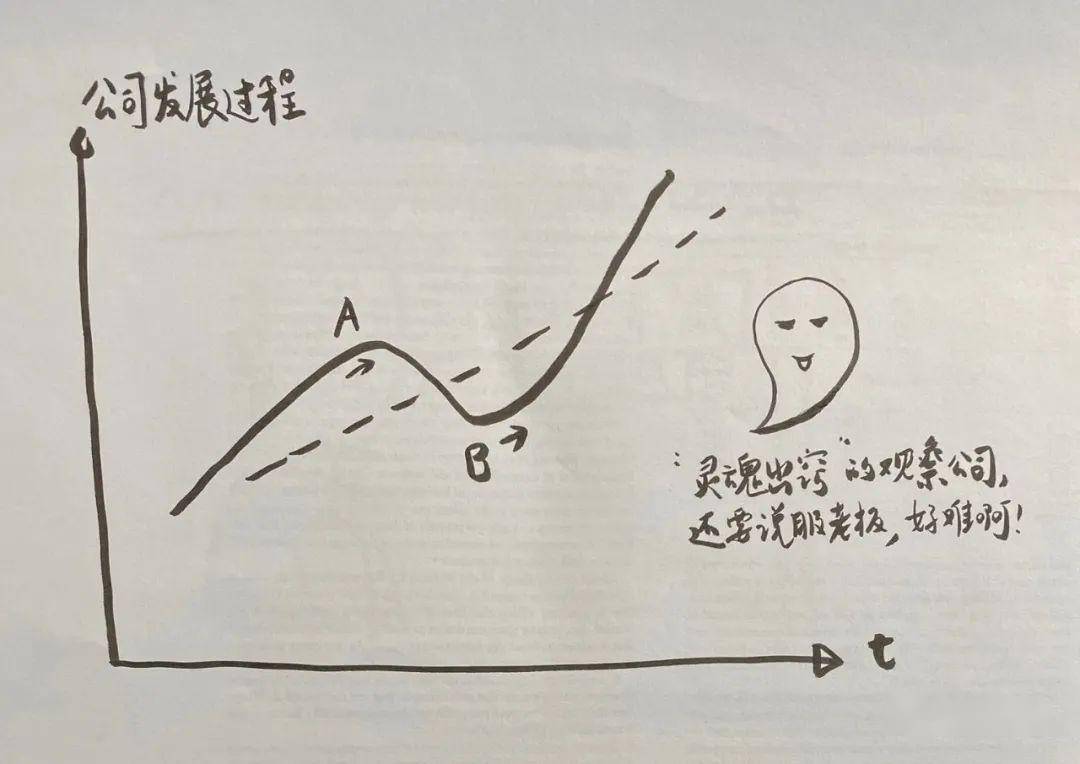 公司发展过程
A
B
"灵魂出窍"的观察公司,
还要说服老板,好难啊!
t